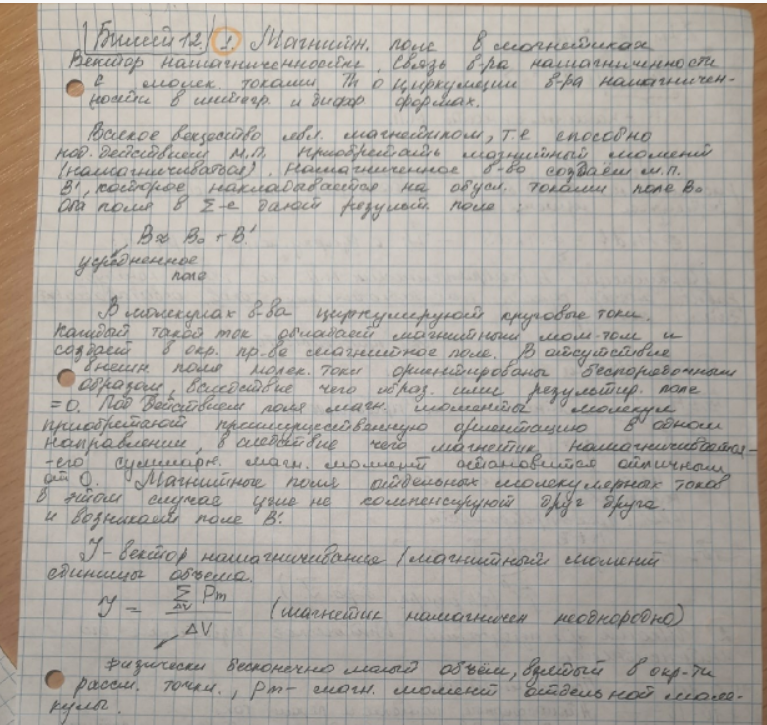 [Билет 12.] 1. Магнитн. поле в магнетиках
Вектор намагниченности. Связь в-ра намагниченности
с молек. токами Th о циркуляции в-ра намагничен-
ности в интегр. и дифф. формах.
Всякое вещество явл. магнетиком, т.е способно
под. действием м.п. приобретать магнитный момент
(намагничиваться). Намагниченное в-во создаёт м.п.
B', которое накладывается на обусл. токами поле B₀
Оба поля в Σ-е дают результ. поле
B = B₀ + B'.
усредненное
поле
В молекулах в-ва циркулируют круговые токи.
Каждый такой ток обладает магнитным мом-том и
создаёт в окр. пр-ве магнитное поле. В отсутствие
внешн. поля молек. токи ориентированы беспорядочным
образом, вследствие чего результир. поле
=0. Под действием поля магн. моменты молекул
приобретают преимущественную ориентацию в одном
направлении, вследствие чего магнетик намагничивается-
-его суммарн. магн. момент становится отличным
от 0. Магнитные поля отдельных молекулярных токов
в этом случае уже не компенсируют друг друга
и возникает поле B'.
J - вектор намагничивание (магнитный момент
единицы объёма.
J = Σ_ΔV Pm / ΔV (магнетик намагничен неоднородно)
Физически бесконечно малый объём, взятый в окр-ти
рассм. точки., pm - магн. момент отдельной моле-
кулы.